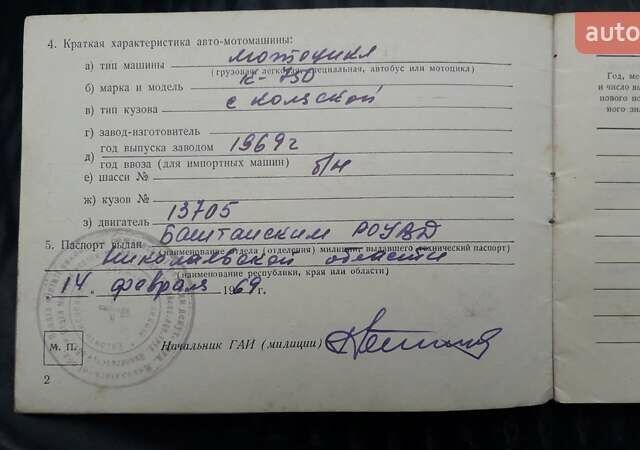 4. Краткая характеристика авто-мотомашины:
а) тип машины мотоцикл
(грузовая, легковая, специальная, автобус или мотоцикл)
б) марка и модель К-750
в) тип кузова с коляской
г) завод-изготовитель
д) год выпуска заводом 1969г
год ввоза (для импортных машин)
е) шасси № б/н
ж) кузов №
з) двигатель 13705
5. Паспорт выдан Баштанским РОВД
(наименование отдела (отделения) милиции, выдавшего технический паспорт)
Николаевской области
(наименование республики, края или области)
14 февраля 1969 г.
М. П.
Начальник ГАИ (милиции)
2
auto
Год, ме
и число вы
нового но
ного зн